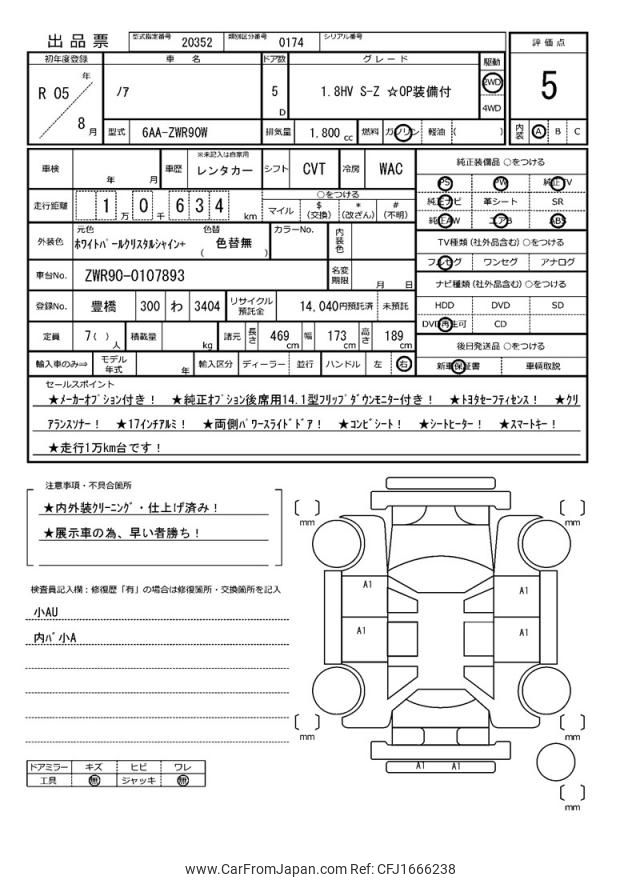 出品票
型式指定番号 20352 類別区分番号 0174 シリアル番号
評価点
5
内装 A B C
初年度登録 車名 ドア数 グレード 駆動
R 05 年 8 月
ノア
5 D
1.8HV S-Z ☆OP装備付
2WD
4WD
型式 6AA-ZWR90W 排気量 1.800 cc 燃料 ガソリン 軽油 ( )
車検 年 月 車歴 ※未記入は自家用 レンタカー シフト CVT 冷房 WAC
走行距離 1 万 0 千 6 3 4 km
○をつける
マイル $ (交換) * (改ざん) # (不明)
外装色 元色 ホワイトパールクリスタルシャイン+ 色替 ( 色替無 ) カラーNo. 内装色
車台No. ZWR90-0107893 名変期限 月 日
登録No. 豊橋 300 わ 3404 リサイクル預託金 14,040円預託済 未預託
定員 7( )人 積載量 kg 諸元 長さ 469 cm 幅 173 cm 高さ 189 cm
輸入車のみ⇒ モデル年式 年 輸入区分 ディーラー 並行 ハンドル 左 右
純正装備品 ○をつける
PS PW 純正TV
純正ナビ 革シート SR
純正AW エアB ABS
TV種類(社外品含む) ○をつける
フルセグ ワンセグ アナログ
ナビ種類(社外品含む) ○をつける
HDD DVD SD
DVD再生可 CD
後日発送品 ○をつける
新車保証書 車輌取説
セールスポイント
★メーカーオプション付き! ★純正オプション後席用14.1型フリップダウンモニター付き! ★トヨタセーフティセンス! ★クリ
アランスソナー! ★17インチアルミ! ★両側パワースライドドア! ★コンビシート! ★シートヒーター! ★スマートキー!
★走行1万km台です!
注意事項・不具合箇所
★内外装クリーニング・仕上げ済み!
★展示車の為、早い者勝ち!
検査員記入欄:修復歴「有」の場合は修復箇所・交換箇所を記入
小AU
内バ小A
ドアミラー キズ ヒビ ワレ
工具 無 ジャッキ 無
[ ] mm
[ ] mm
A1
A1
A1
A1
[ ] mm
[ ] mm
A1 A1
[ ] mm
www.CarFromJapan.com Ref: CFJ1666238